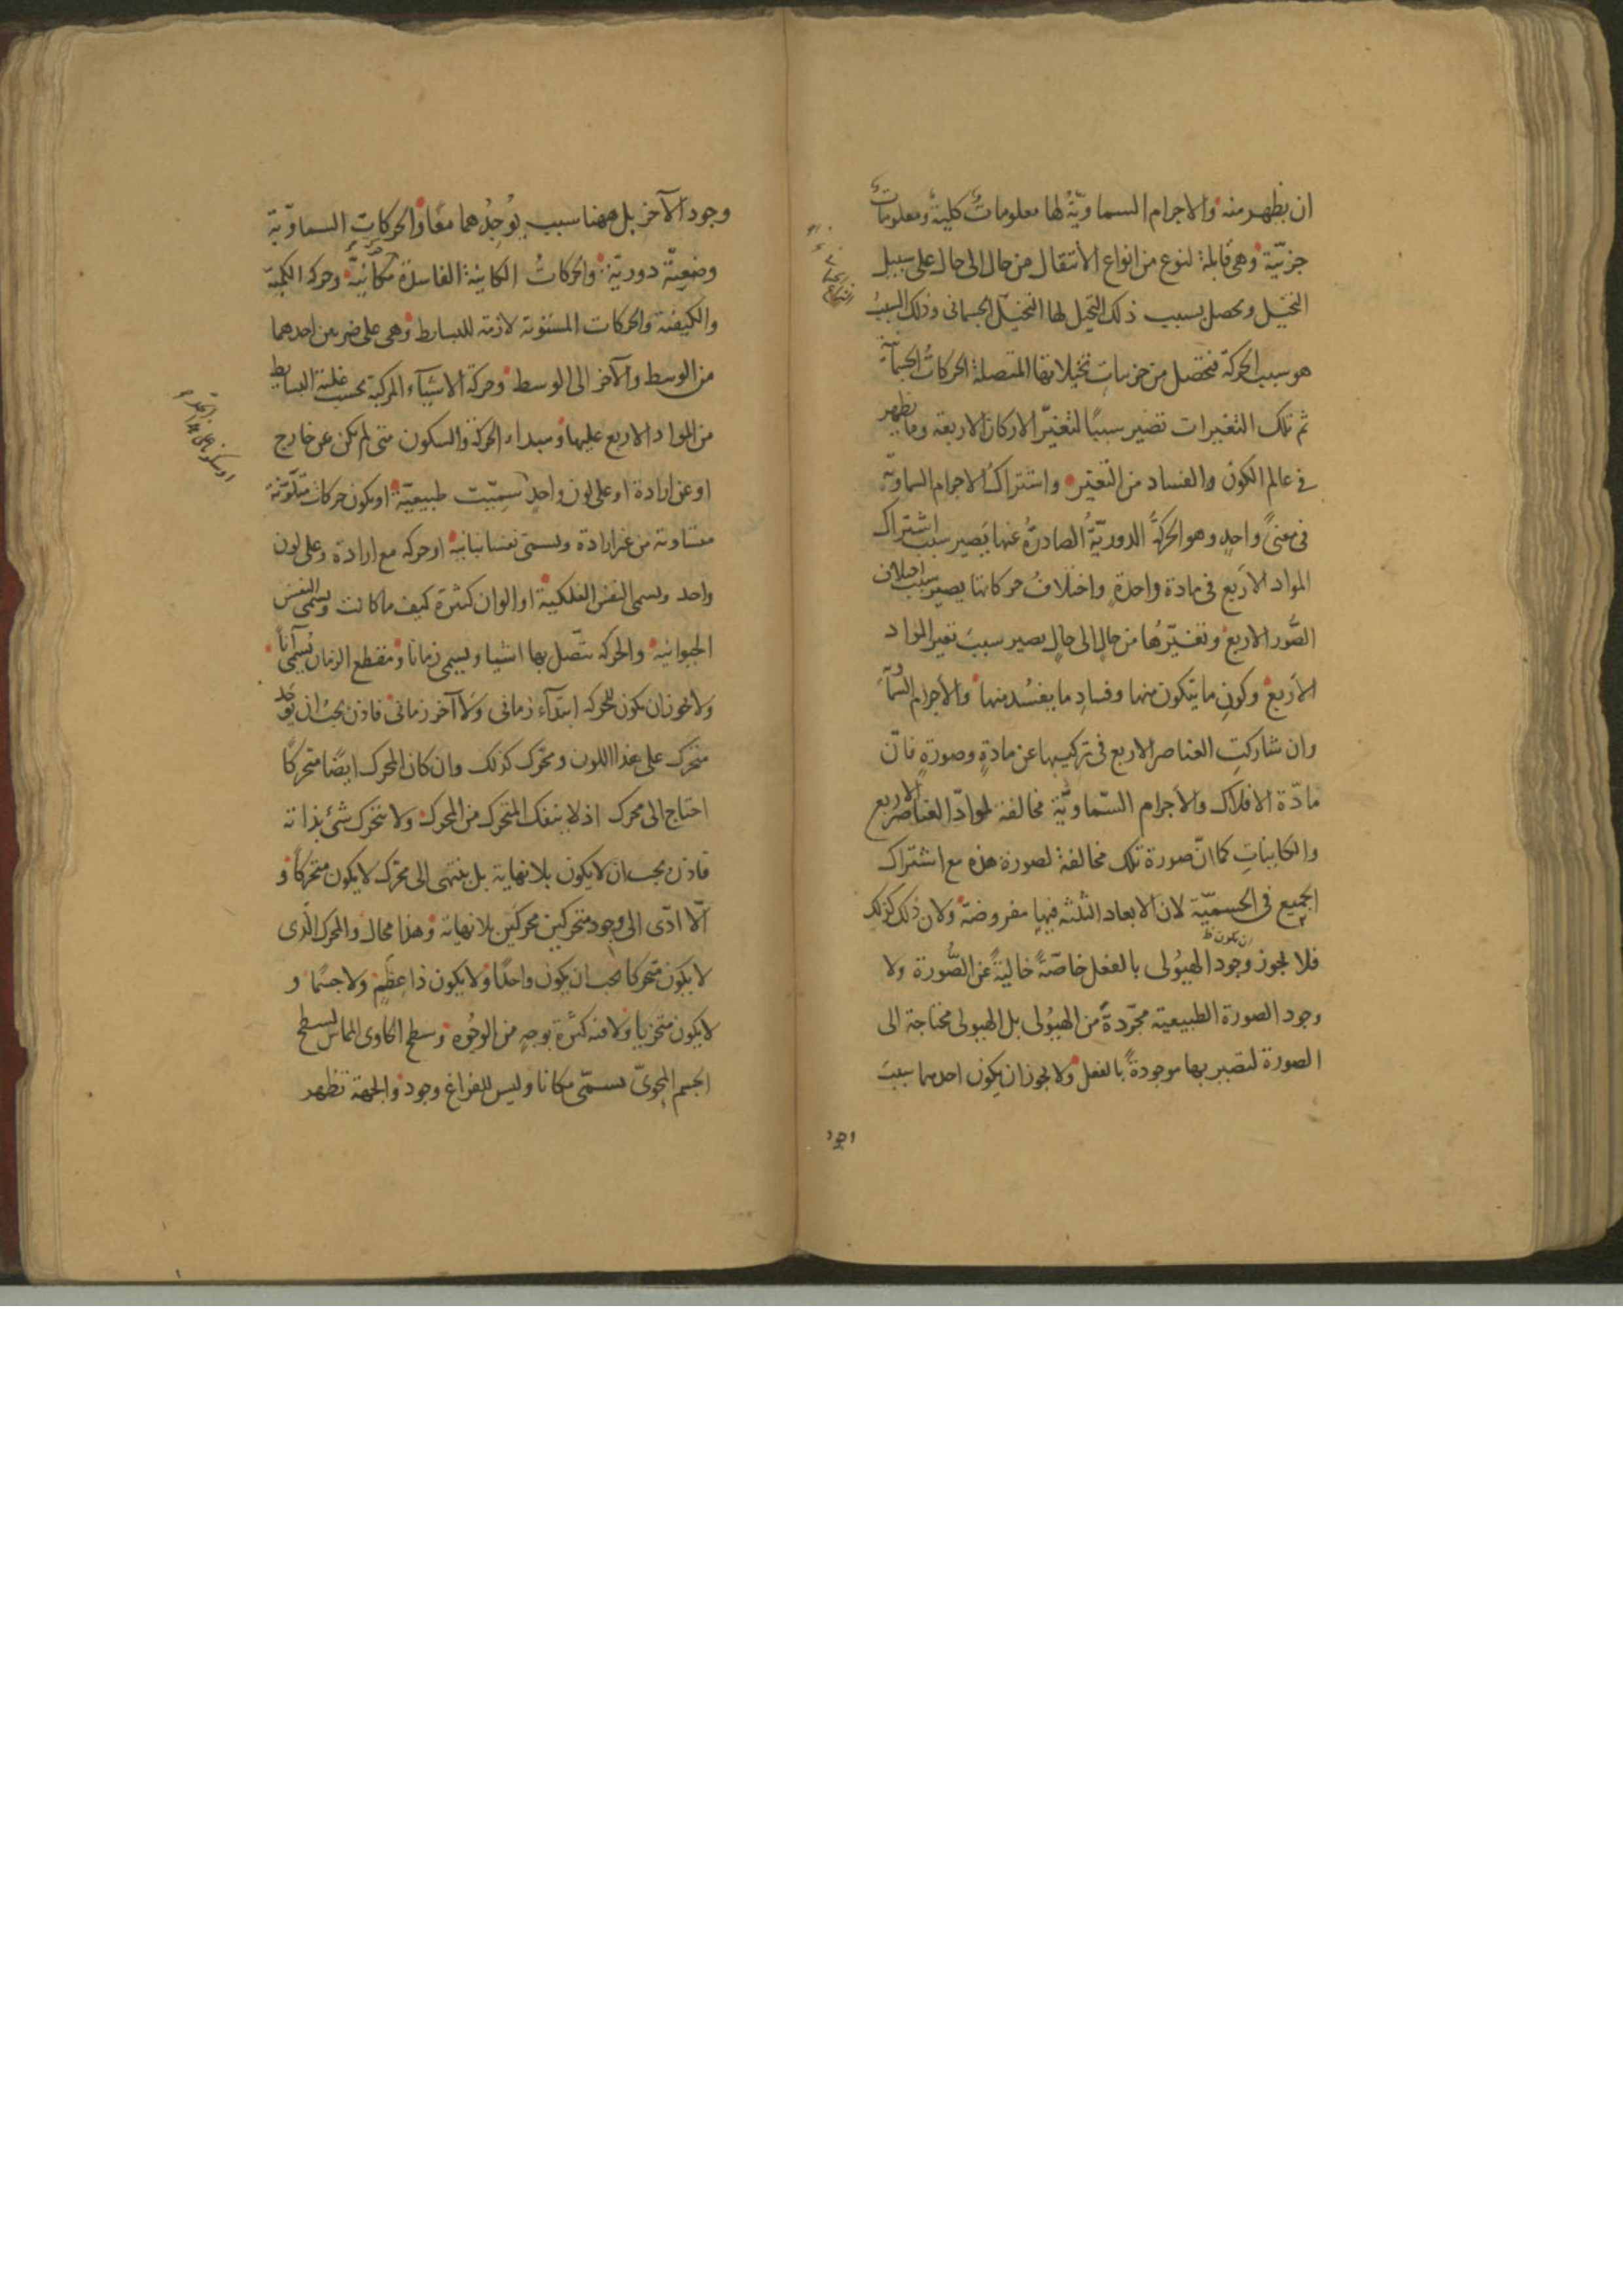 ان يظهر منه والاجرام السماويّة لها معلوماتٌ كليةٌ ومعلوماتٌ
جزئيّة وهى قابلة لنوع من انواع الانتقال من حال الى حال على سبيل
التخيّل ويحصل بسبب ذلك التخيل لها التخيّل الجسمانى وذلك السببُ
هو سبب الحركة فتحصل من جزئياتِ تخيلاتها المتصلة الحركاتُ الجسمانية
ثم تلك التغيرات تصير سببًا لتغيّر الاركان الاربعة وما يظهر
فى عالم الكون والفساد من التغيّر واشتراكُ الاجرام السماويّة
فى معنىً واحدٍ وهو الحركةُ الدوريّةُ الصادرةُ عنها يصير سبب اشتراك
المواد الاربع فى مادة واحدةٍ واختلافُ حركاتها يصير سبب اختلاف
الصُّور الاربع وتغيّرُها من حالٍ الى حالٍ يصير سببَ تغير المواد
الاربع وكون ما يتكون منها وفساد ما يفسُد منها والاجرام السمآ
وان شاركتِ العناصر الاربع فى تركيبها عن مادةٍ وصورةٍ فانّ
مادّة الافلاك والاجرام السّماويّة مخالفة لموادّ العناصر الاربع
والكاينات كما انّ صورة تلك مخالفة لصورة هذه مع اشتراك
الجميع فى الجسميّة لان الابعاد الثلثه فيها مفروضة ولان ذلك كذلك
ان يكون ظ
فلا يجوز وجود الهيُولى بالفعل خاصّةً خاليةً عن الصُّورة ولا
وجود الصورة الطبيعية مجرّدةً من الهيُولى بل الهيولى محتاجة الى
الصورة لتصير بها موجودةً بالفعل ولا يجوز ان يكون احدهما سببَ
وجود
وجود الآخر بل ههنا سبب يُوجِدُهما معًا والحركاتِ السماويّة
وضعيّة دوريّة والحركاتُ الكاينة الفاسدة مكانيّة وحركة الكميّة
والكيفية والحركات المستوية لازمة للبسايط وهى على ضربين احدهما
من الوسط والآخر الى الوسط وحركة الاشيآء المركبة بحسب غلبة البسايط
من المواد الاربع عليها ومبداء الحركة والسكون متى لم يكن عن خارج
او عن ارادة او على لون واحدٍ سمّيت طبيعيّة او يكون حركات متلوّنة
متفاوتة من غير ارادة ويسمى نفسا نباتية او حركه مع ارادة وعلى لون
واحد ويسمى النفس الفلكية او الوان كثيرة كيف ما كانت ويسمى النفس
الحيوانيه والحركه تتّصل بها اشيا ويسمى زمانا ومقطع الزمان يُسمى آنًا
ولا يجوز ان يكون للحركه ابتدآء زمانى ولا آخر زمانى فاذن يجب ان يوجد
متحرك على هذا اللون ومحرّك كذلك وان كان المحرك ايضًا متحركًا
احتاج الى محرك اذ لا ينفك المتحرك من المحرك ولا يتحرك شئ بذاته
فاذن يجب ان لا يكون بلا نهاية بل ينتهى الى محرّك لا يكون متحركًا و
الّا ادّى الى وجود متحركين محركين بلا نهاية وهذا محال والمحرك الّذى
لا يكون متحركا يجب ان يكون واحدًا ولا يكون ذا عِظَمٍ ولا جسمًا و
لا يكون متجزيا ولا فيه كثرة بوجهٍ من الوجُوه وسطح الحاوى المماس لسطح
الجسم المحوىّ يسمّى مكانا وليس للفراغ وجود والجهة تظهر